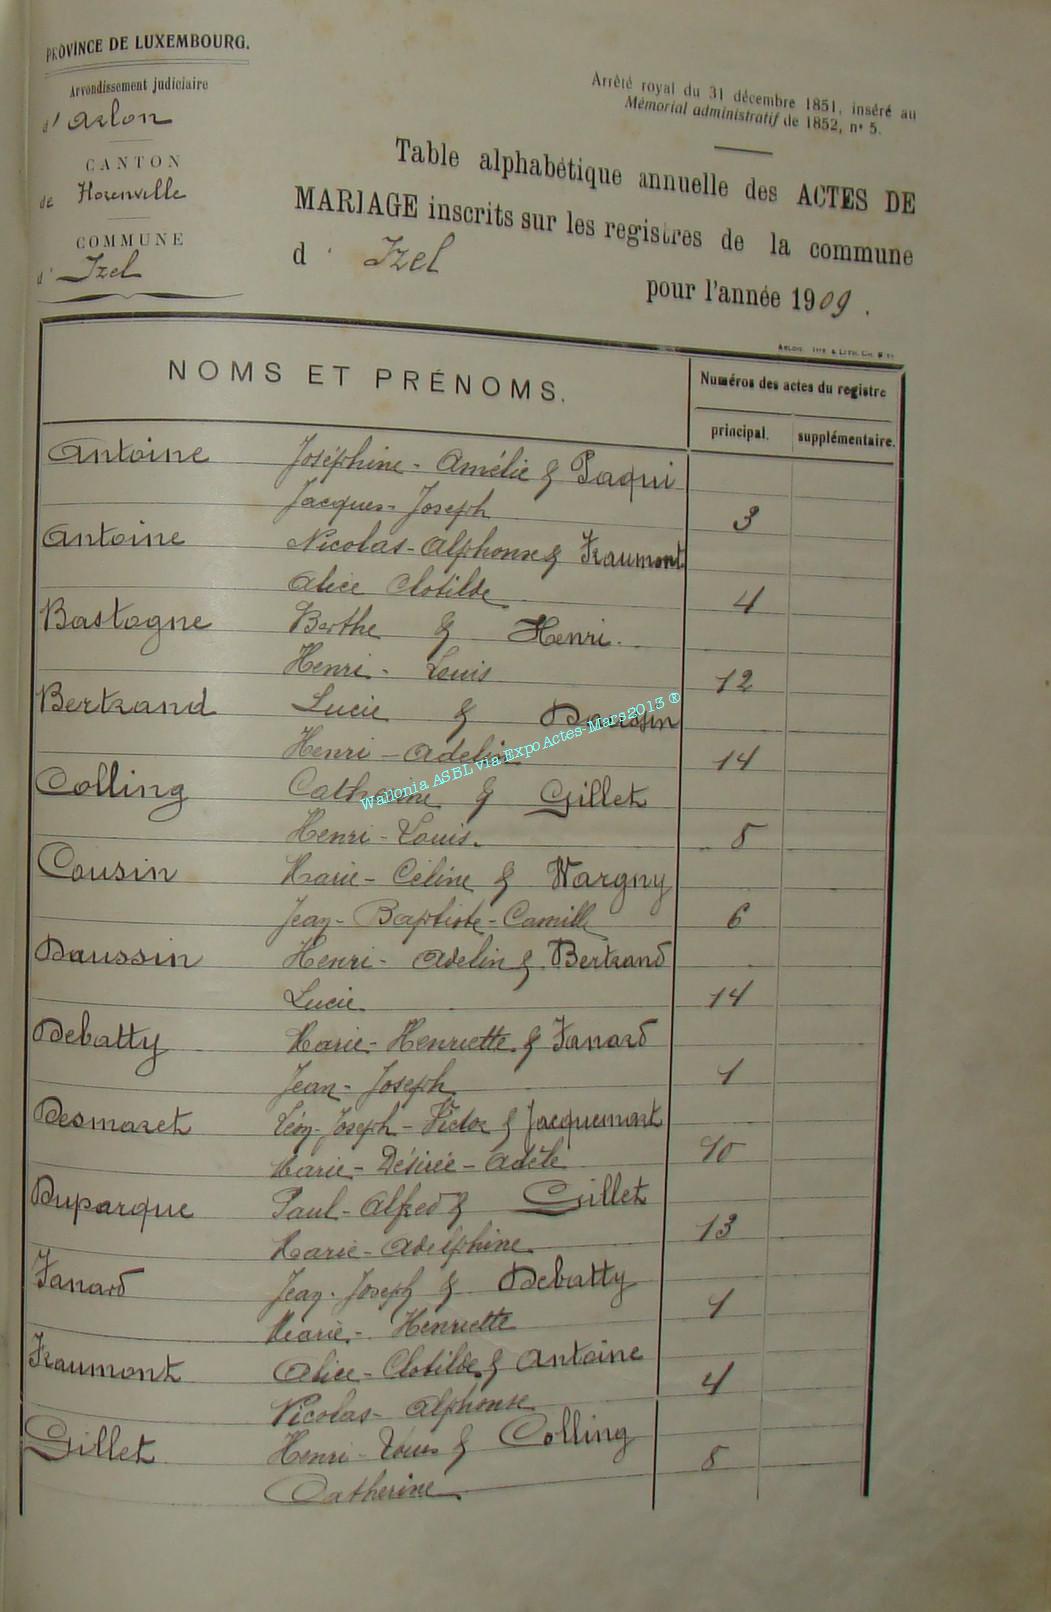 PROVINCE DE LUXEMBOURG.
Arrondissement judiciaire
d'Arlon
CANTON
de Florenville
COMMUNE
d' Izel
Arrêté royal du 31 décembre 1851, inséré au
Mémorial administratif de 1852, n° 5.
Table alphabétique annuelle des ACTES DE
MARIAGE inscrits sur les registres de la commune
d' Izel
pour l'année 1909.
NOMS ET PRÉNOMS.
Numéros des actes du registre
principal. supplémentaire.
Antoine Joséphine-Amélie & Paqui
Jacques-Joseph 3
Antoine Nicolas-Alphonse & Fraumont
Alice Clotilde 4
Bastogne Berthe & Henri
Henri-Louis 12
Bertrand Lucie & Daussin
Henri-Adelin 14
Wallonia ASBL via Expo Actes-Mars2013 ®
Colling Catherine & Gillet
Henri-Louis. 8
Cousin Marie-Céline & Wargny
Jean-Baptiste-Camille 6
Daussin Henri-Adelin & Bertrand
Lucie 14
Debatty Marie-Henriette & Fanard
Jean-Joseph 1
Desmaret Léon-Joseph-Victor & Jacquemart
Marie-Désirée-Adèle 10
Duparque Paul-Alfred & Gillet
Marie-Adelphine 13
Fanard Jean-Joseph & Debatty
Marie-Henriette 1
Fraumont Alice-Clotilde & Antoine
Nicolas-Alphonse 4
Gillet Henri-Louis & Colling
Catherine 8